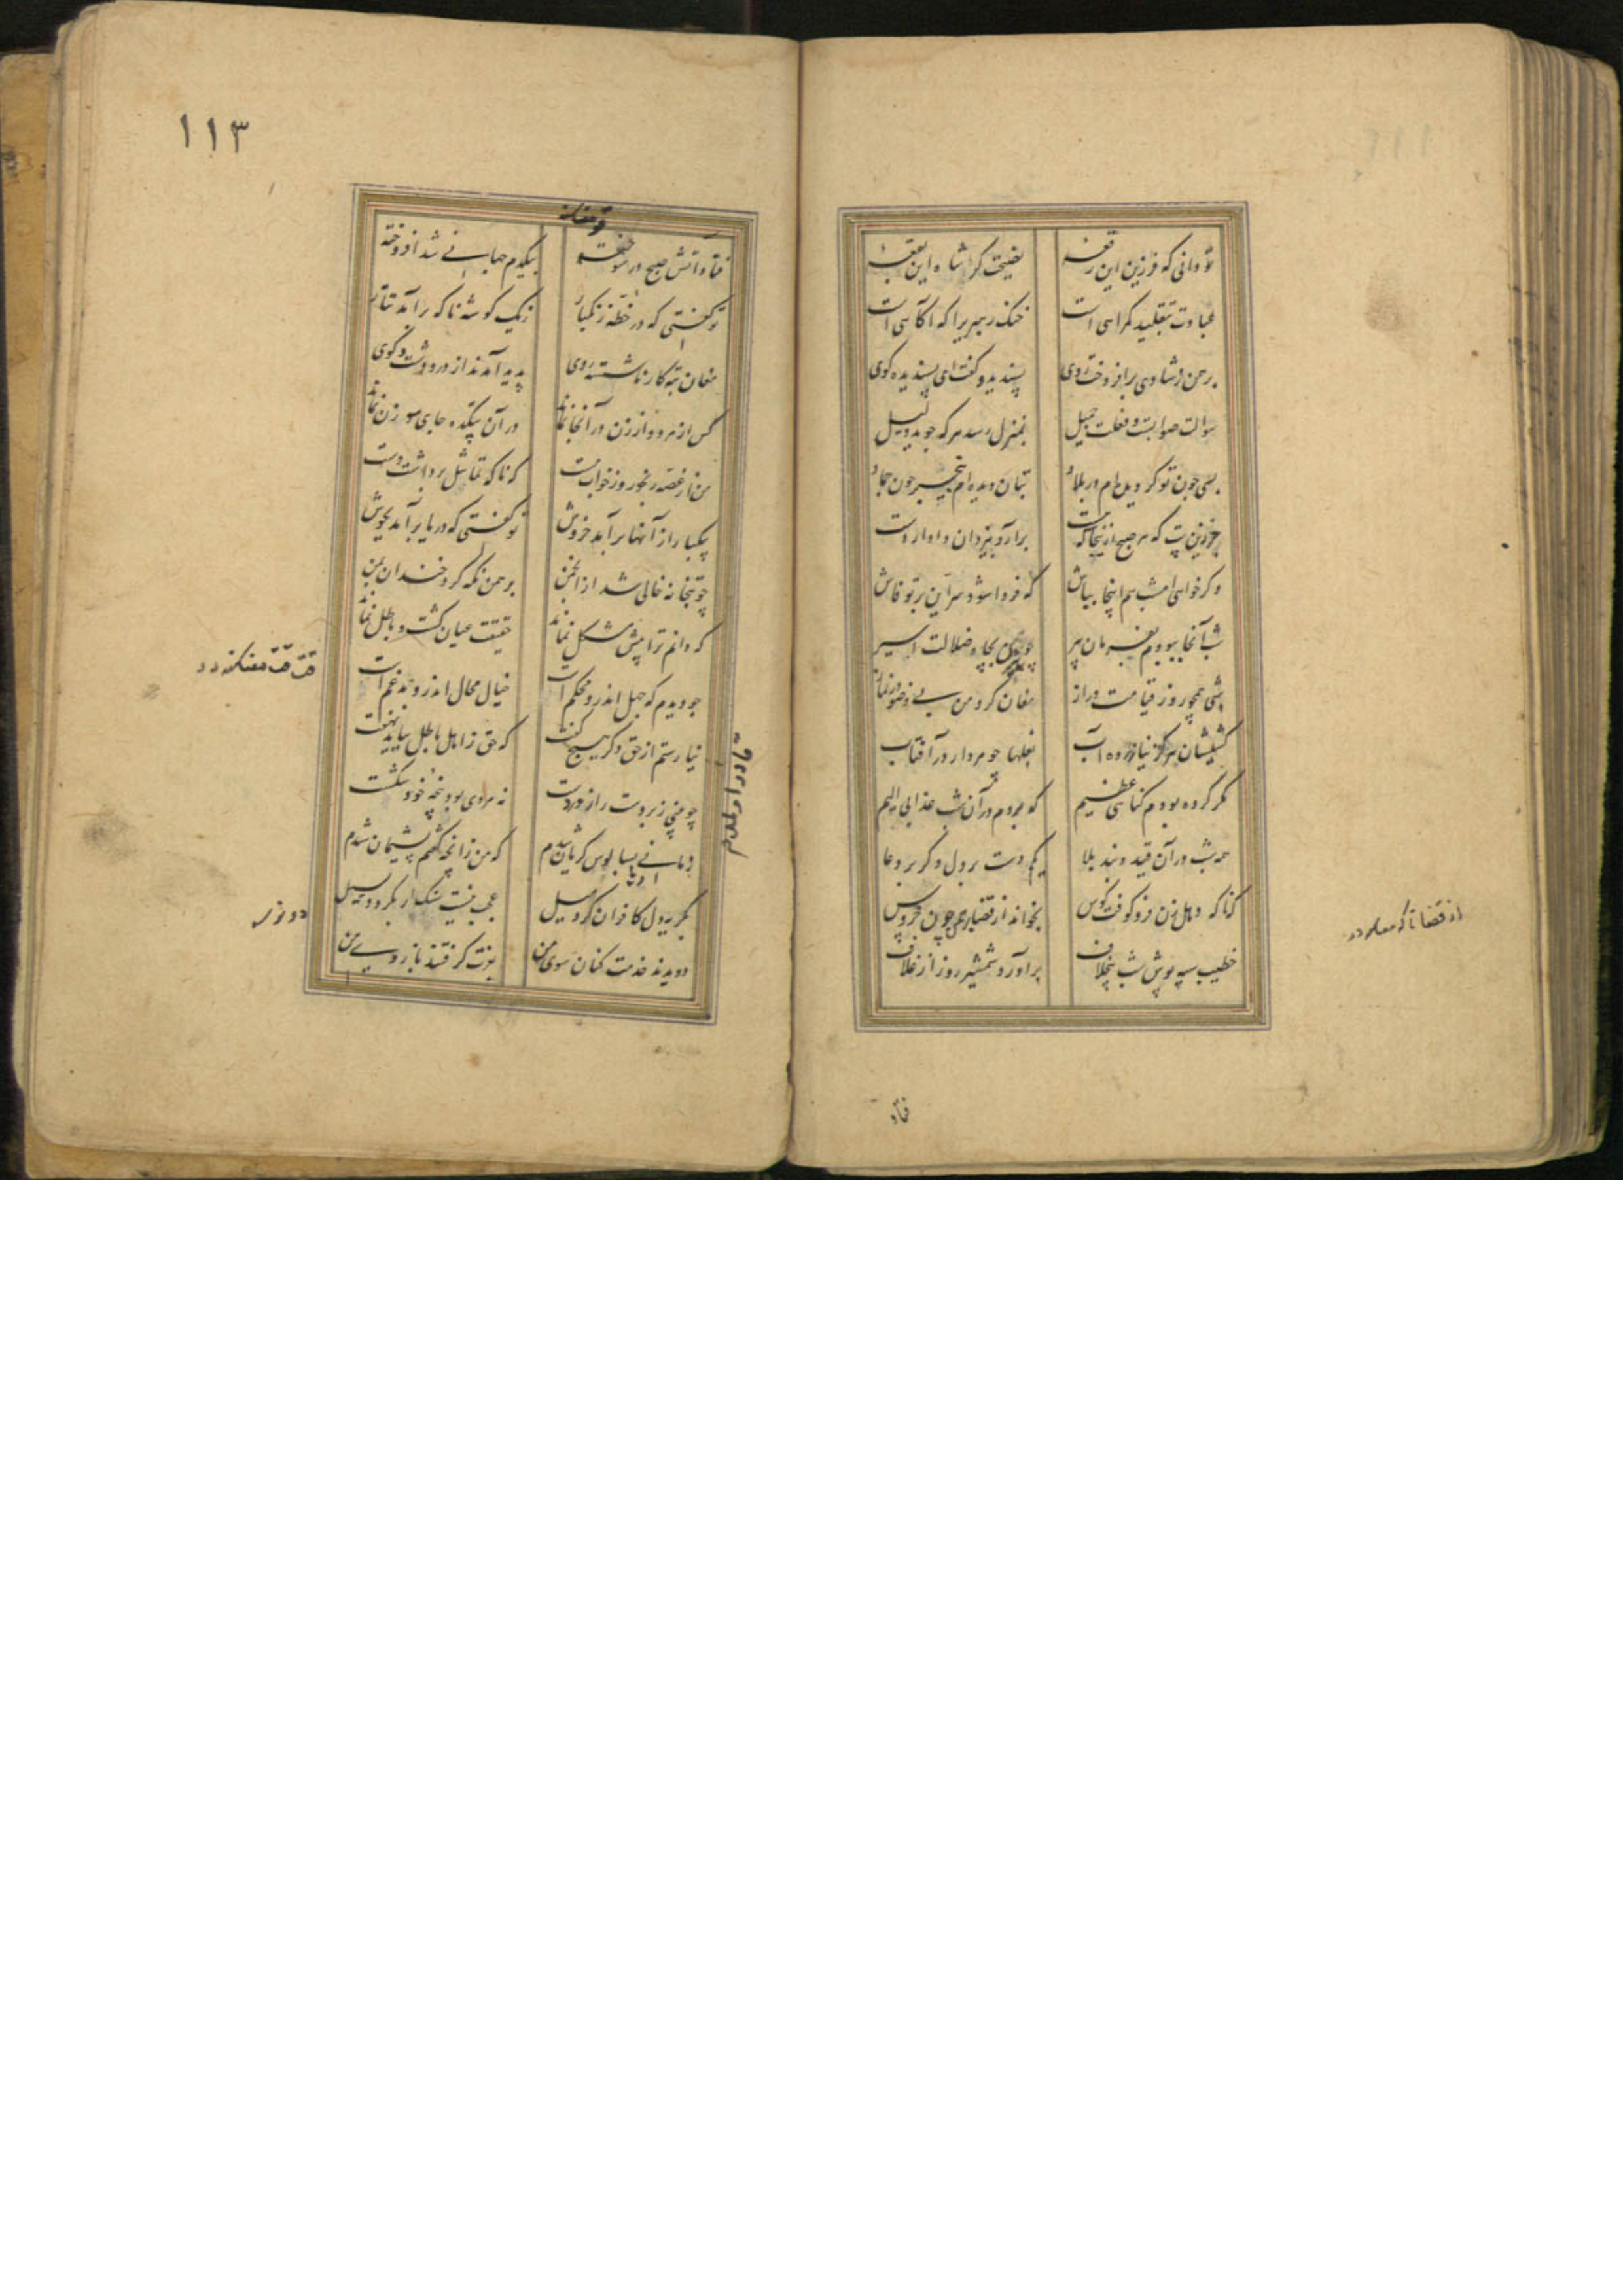 تو دانی که فرزین این رقعه نصیحت گر شاه این بقعه
عبادت بتقلید گمراهی است خنک رهروی را که آگاهی است
برهمن ز شادی برافروخت روی پسندید و گفت ای پسندیده گوی
سوالت صوابست و فعلت جمیل بمنزل رسد هر که جوید دلیل
بسی چون تو گردیدم اندر بلاد بتان دیده‌ام بیخبر چون جماد
جزین بت که هر صبح ازینجا که هست برآرد بیزدان دادار دست
وگر خواهی امشب هم اینجا بباش که فردا شود سر این بر تو فاش
شب آنجا ببودم بفرمان پیر چو بیژن بچاه ضلالت اسیر
شبی همچو روز قیامت دراز مغان گرد من بی وضو در نماز
کشیشان هرگز نیازرده آب بغلها چو مردار در آفتاب
مگر کرده بودم گناهی عظیم که بردم در آن شب عذابی الیم
همه شب در آن قید و بند بلا یکم دست بر دل یکی بر دعا
که ناگه دهل زن فرو کوفت کوس بخواند از قضا برهمن چون خروس
خطیب سیه پوش شب بیخلاف برآورد شمشیر روز از غلاف
فتاد
۱۱۳
فتاد آتش صبح در سوخته بیکدم جهانی شد افروخته
تو گفتی که در خطه زنگبار ز یک گوشه ناگه برآمد تتار
مغان تبه کار ناشسته روی پدید آمدند از در و دشت و کوی
کس از مرد و از زن در آنجا نماند در آن بتکده جای سوزن نماند
من از غصه رنجور و از خواب مست که ناگه تماثیل برداشت دست
بیکبار از آنها برآمد خروش تو گفتی که دریا برآمد بجوش
چو بتخانه خالی شد از انجمن برهمن نگه کرد خندان بمن
که دانم ترا پیش مشکل نماند حقیقت عیان گشت و باطل نماند
چو دیدم که جهل اندرو محکم است خیال محال اندرو مدغم است
نیارستم از حق دگر هیچ گفت که حق ز اهل باطل بباید نهفت
چو بینی زبردست را زور دست نه مردی بود پنجه خود شکست
زمانی بسالوس گریان شدم که من زانچه گفتم پشیمان شدم
بگریه دل کافران کرد میل عجب نیست سنگ ار بگردد بسیل
دویدند خدمت کنان سوی من بعزت گرفتند بازوی من